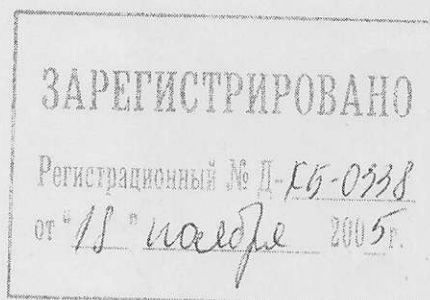 ЗАРЕГИСТРИРОВАНО
Регистрационный № Д-ХБ-0338
от "18" ноября 2005г.